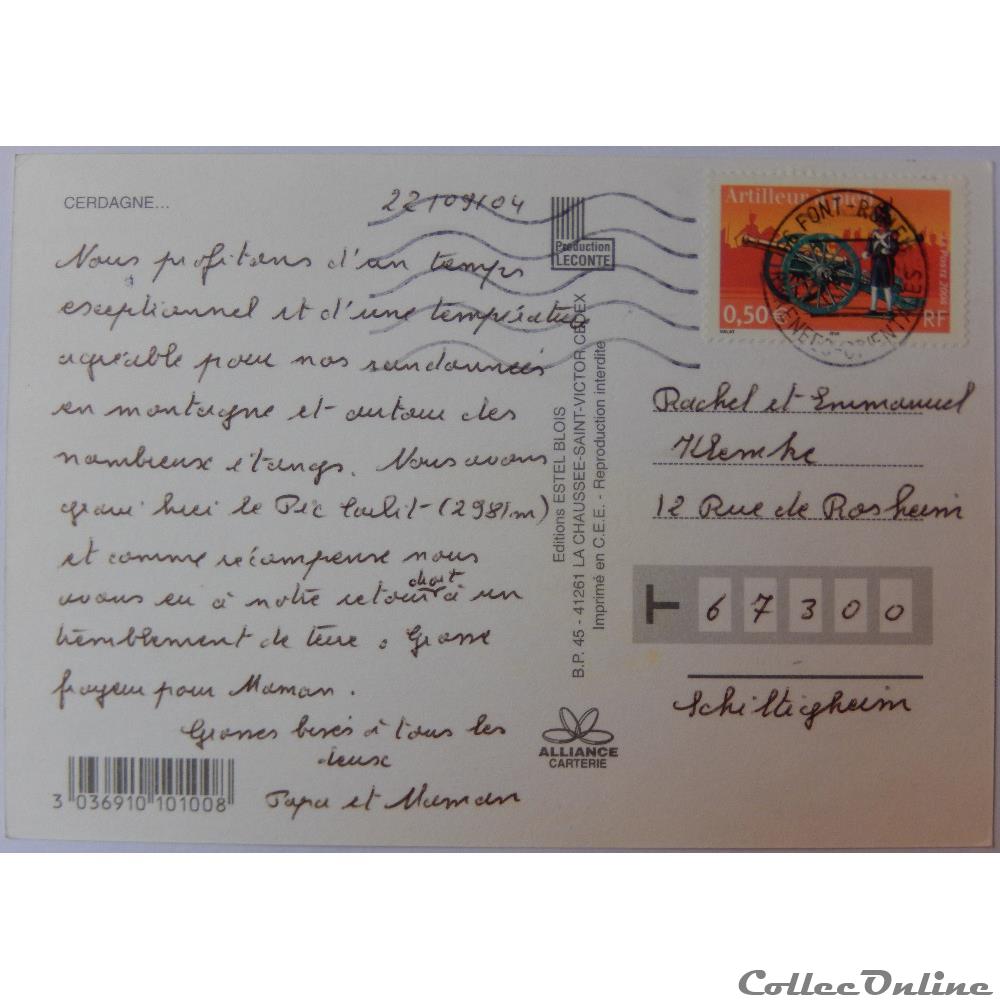 CERDAGNE...
22/09/04
Nous profitons d'un temps
exceptionnel et d'une température
agréable pour nos randonnées
en montagne et autour des
nombreux étangs. Nous avons
gravi hier le Pic Carlit (2981m)
et comme récompense nous
avons eu à notre retour droit à un
tremblement de terre : Grosse
frayeur pour Maman.
Grosses bises à tous les
deux
Papa et Maman
3 036910 101008
Production
LECONTE
Editions ESTEL BLOIS
B.P. 45 - 41261 LA CHAUSSEE-SAINT-VICTOR CEDEX
Imprimé en C.E.E. - Reproduction interdite
ALLIANCE
CARTERIE
Artilleur
0,50 €
RF
LA POSTE
FONT-ROMEU
PYRENEES-ORIENTALES
Rachel et Emmanuel
Klemke
12 Rue de Rosheim
67300
Schiltigheim
CollecOnline